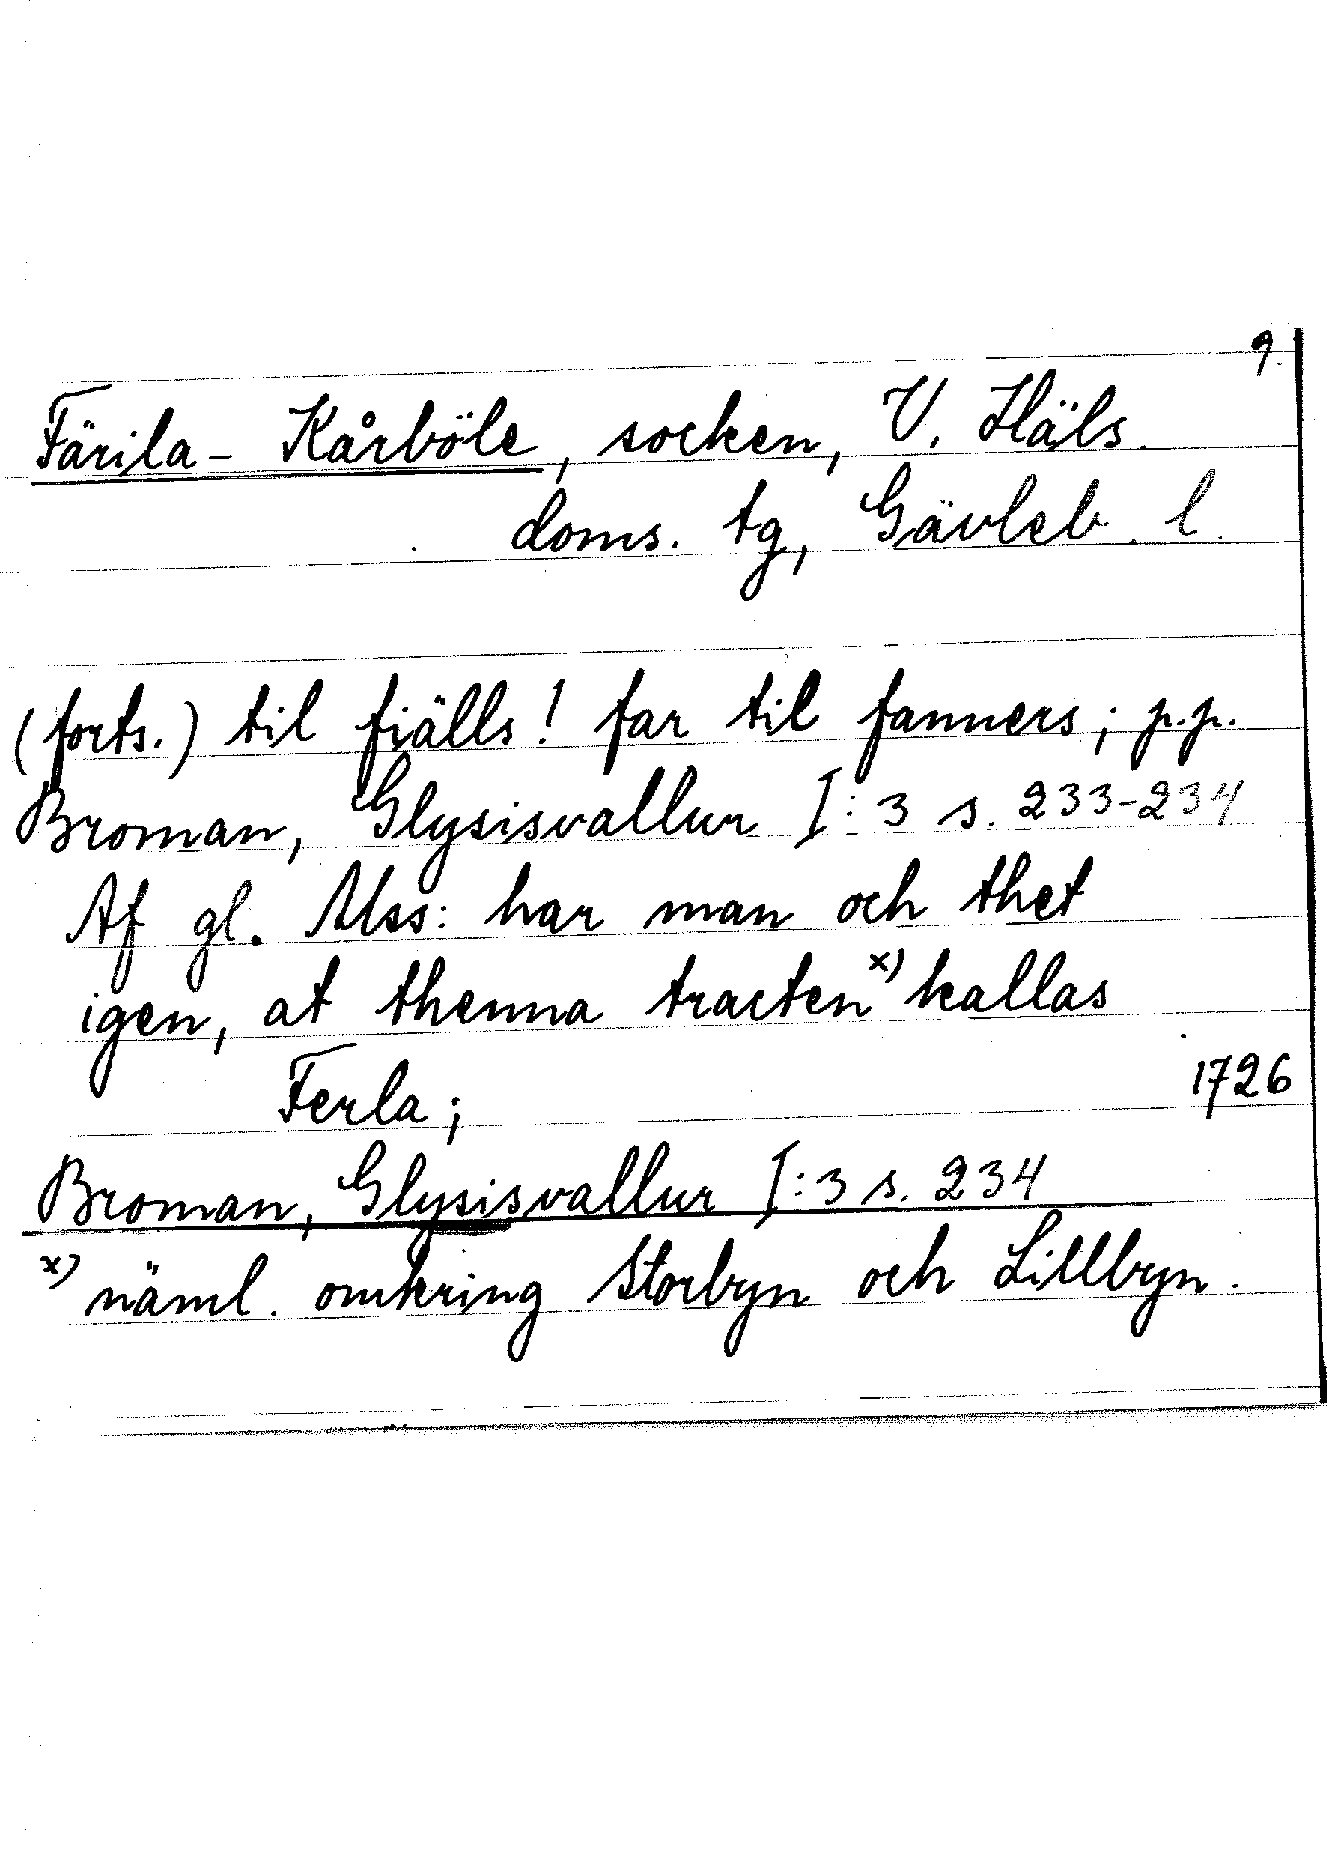 9.
Färila-Kårböle, socken, V. Häls.
doms. tg, Gävleb. l.
(forts.) til fiälls! far til fanners; p.p.
Broman, Glysisvallur I:3 s. 233-234
Af gl. Mss: har man och thet
igen, at thenna tracten x) kallas
Ferla; 1726
Broman, Glysisvallur I:3 s. 234
x) näml. omkring Storbyn och Lillbyn.